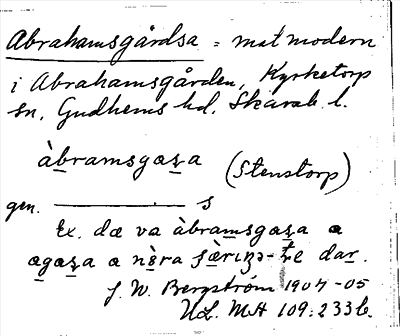 Abrahamsgårdsa = matmodern
i Abrahamsgården, Kyrketorp
sn, Gudhems hd. Skarab. l.
àbramsgaʂa (Stenstorp)
gen. ———— s
Ex. dæ va àbramsgaʂa a
ægaʂa a nȯra
dar.
J. W. Bergström 1904-05
ULMA 109:233b.